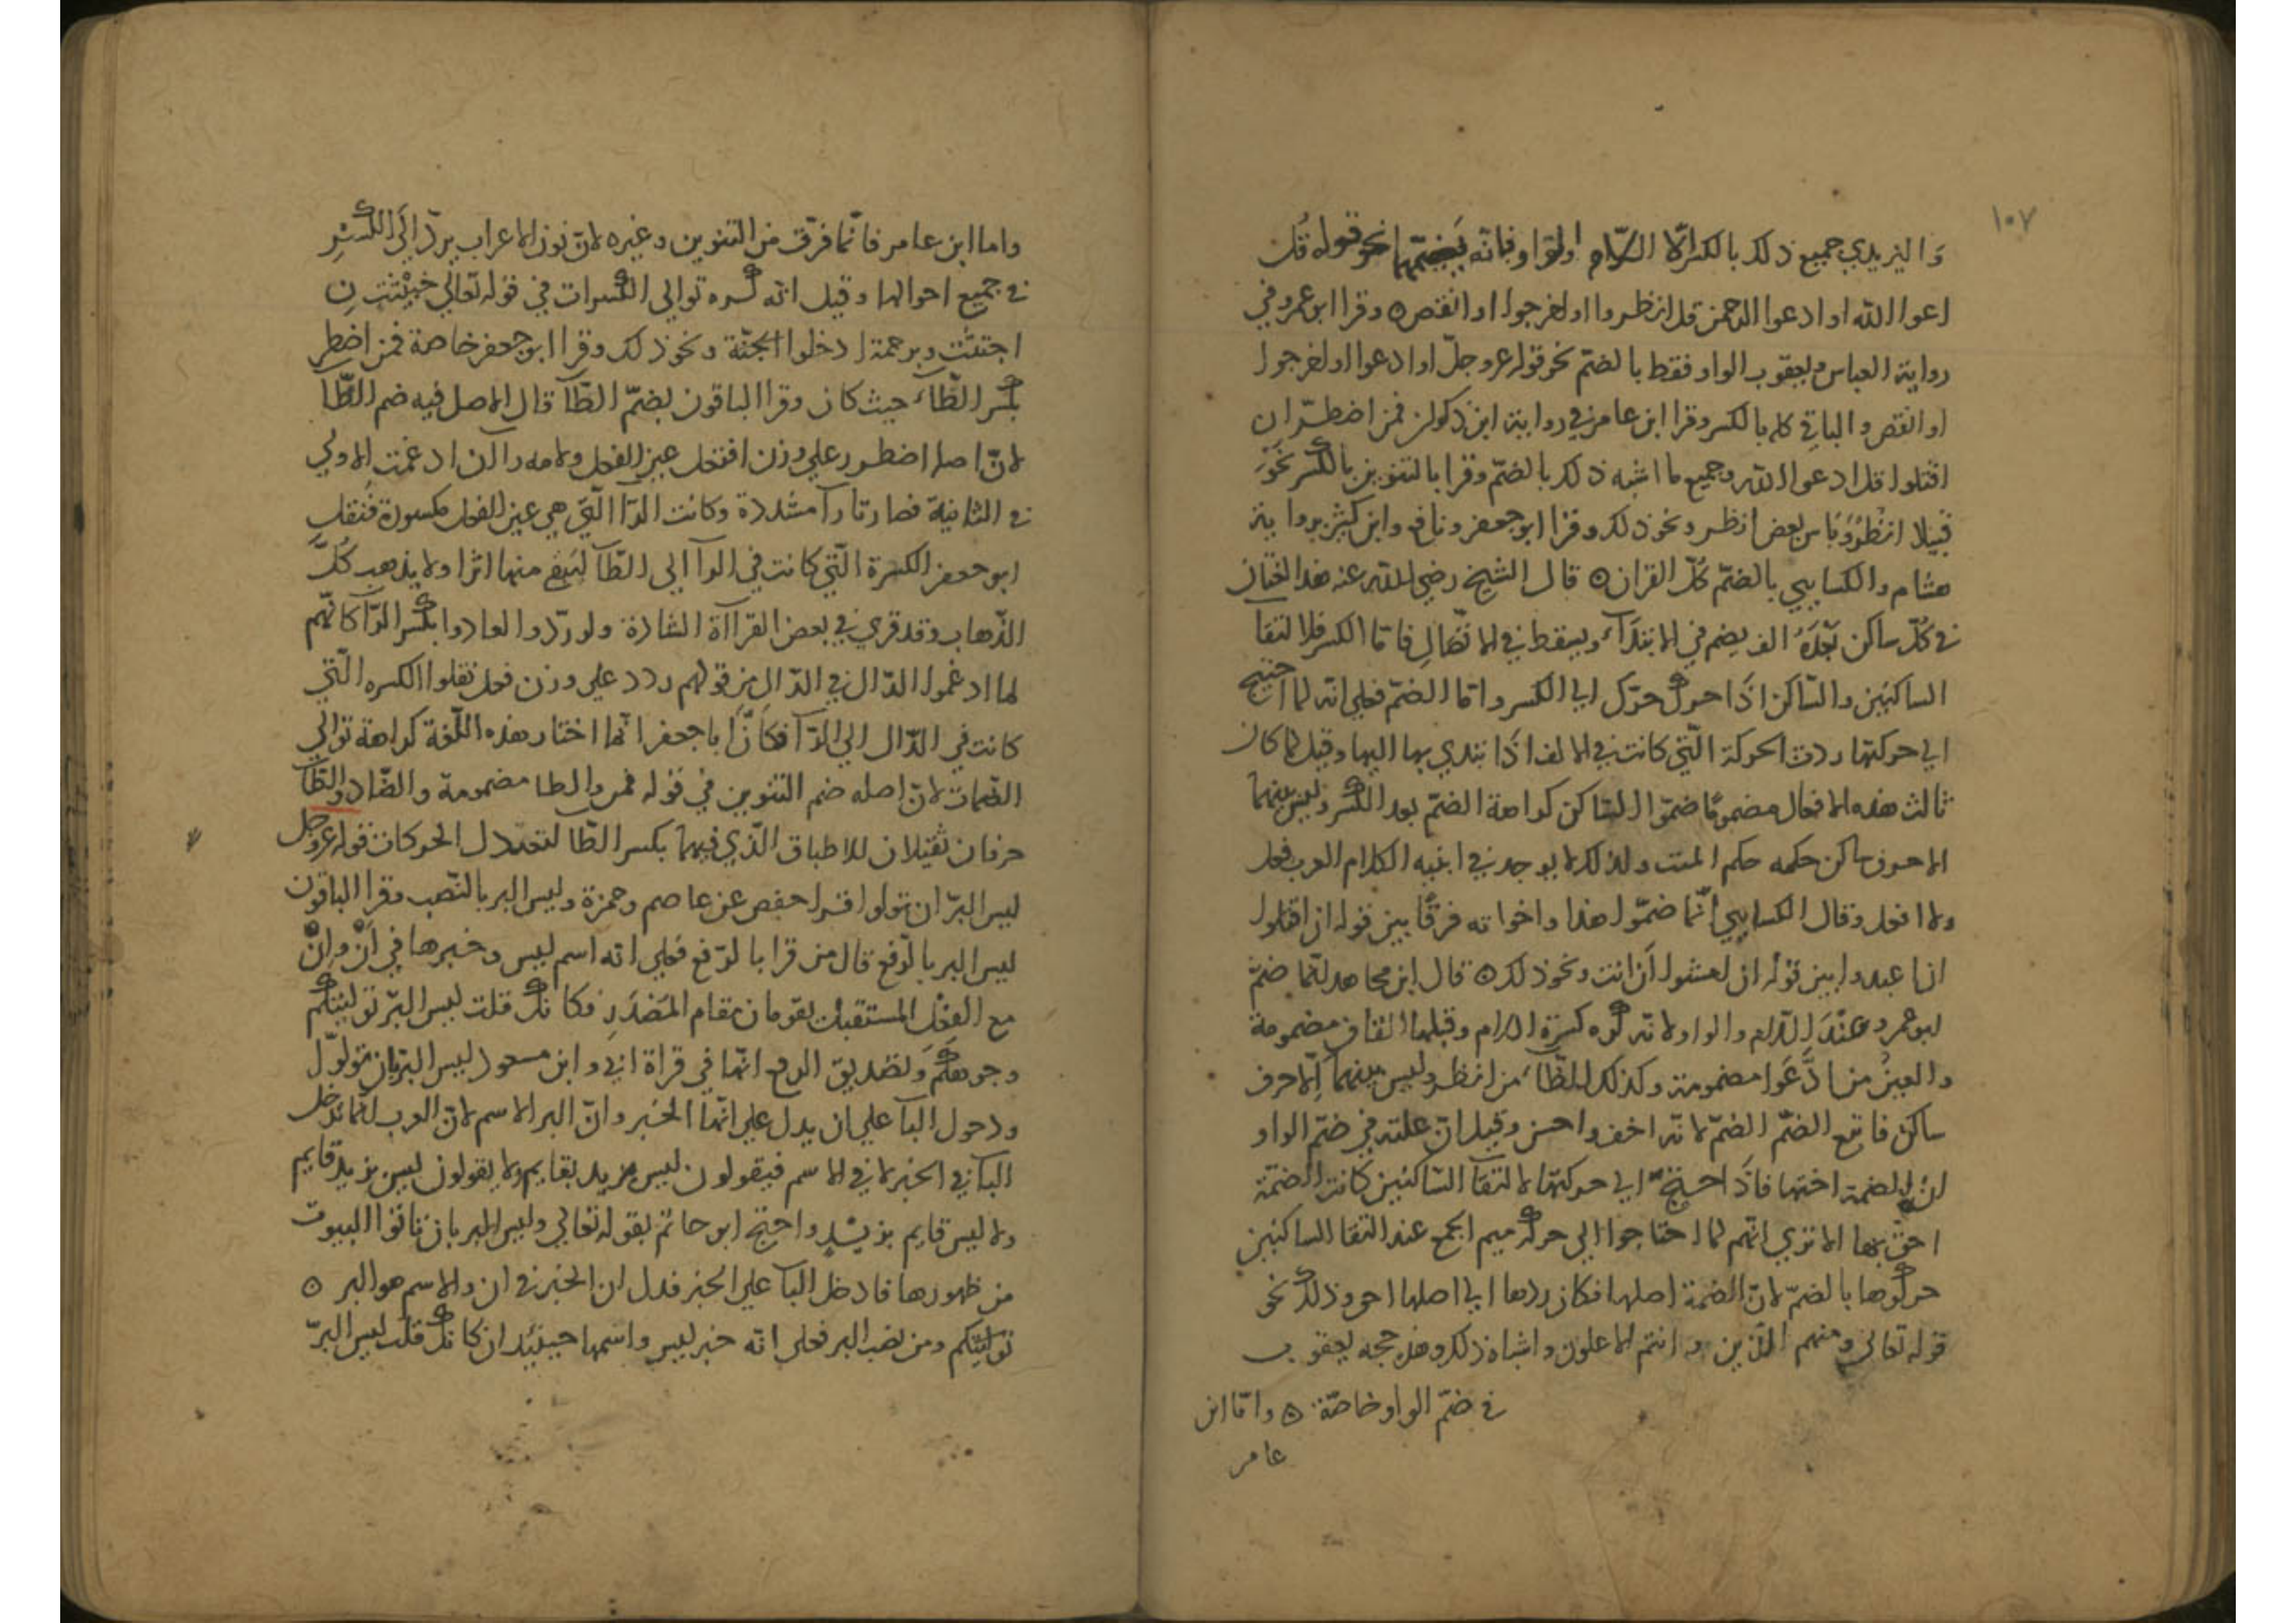 ١٠٧
واليزيدي جميع ذلك بالكسر الا اللام والواو فانه يضمهما نحو قوله قل
ادعوا الله او ادعوا الرحمن قل انظروا او اخرجوا او انقص ٥ وقرا ابو عمرو في
رواية العباس ويعقوب الواو فقط بالضم نحو قوله عز وجل او ادعوا او اخرجوا
او انقص والباقي كله بالكسر وقرا ابن عامر في رواية ابن ذكوان فمن اضطر ان
اقتلوا قل ادعوا الله وجميع ما اشبه ذلك بالضم وقرا بالتنوين بالكسر نحو
فتيلا انظر وباس بعض انظر ونحو ذلك وقرا ابو جعفر ونافع وابن كثير برواية
هشام والكسايي بالضم كل القران ٥ قال الشيخ رضي الله عنه هذا
في كل ساكن بعده الف يضم في الابتداء ويسقط في الاتصال فاما الكسر فلالتقا
الساكنين والساكن اذا حرك حرك الي الكسر واما الضم فعلي انه لما احتيج
الي حركتها ردت الحركة التي كانت في الالف اذا ابتدي بها اليها وقيل لما كان
ثالث هذه الافعال مضموما ضموا الساكن كراهة الضم بعد الكسر وليس بينهما
الا حرف ساكن حكمه حكم الميت ولذلك لا يوجد في ابنية الكلام العرب فعل
ولا افعل وقال الكسايي انما ضموا هذا واخواته فرقا بين قوله ان اقتلوا
ان اعبدوا بين قوله ان امشوا ان انت ونحو ذلك ٥ قال ابن مجاهد انما ضم
ابو عمرو عند اللام والواو لانه كره كسرة اللام وقبلها القاف مضمومة
والعين من ادعوا مضمومة وكذلك الظاء من انظر وليس بينهما الا حرف
ساكن فاتبع الضم الضم لانه اخف واحسن وقيل ان علته في ضم الواو
لان الضمة اختها فاذا احتيج الي حركتها لالتقا الساكنين كانت الضمة
احق بها الا تري انهم لما احتاجوا الي حركة ميم الجمع عند التقا الساكنين
حركوها بالضم لان الضمة اصلها فكان ردها الي اصلها احق وذلك نحو
قوله تعالي ومنهم الذين وانتم الاعلون واشباه ذلك وهذه حجة يعقوب
في ضم الواو خاصة ٥ واما ابن
عامر
واما ابن عامر فانما فرق من التنوين وغيره لان نون الاعراب يرد الي الكسر
في جميع احوالها وقيل انه كره توالي الكسرات في قوله تعالي خبيثتن
اجتثت وبرحمة ادخلوا الجنة ونحو ذلك وقرا ابو جعفر خاصة فمن اضطر
بكسر الطاء حيث كان وقرا الباقون بضم الطا قال الاصل فيه ضم الطا
لان اصله اضطرر علي وزن افتعل عين الفعل ولامه را الن ادغمت الاولي
في الثانية فصارتا را مشددة وكانت الرا التي هي عين الفعل مكسورة فنقل
ابو جعفر الكسرة التي كانت في الرا الي الطا ليبقي منها اثرا ولا يذهب كل
الذهاب وقد قري في بعض القراآة الشاذة ولو ردوا لعادوا بكسر الرا كانهم
لما ادغموا الدال في الدال من قولهم ردد علي وزن فعل نقلوا الكسره التي
كانت في الدال الي الرا فكان ابا جعفر انما اختار هذه اللغة كراهة توالي
الضمات لان اصله ضم التنوين في قوله فمن والطا مضمومة والضاد والطا
حرفان ثقيلان للاطباق الذي فيهما بكسر الطا لتعدل الحركات قوله عز وجل
ليس البر ان تولوا قرا حفص عن عاصم وحمزة وليس البر بالنصب وقرا الباقون
ليس البر بالرفع قال من قرا بالرفع فعلي انه اسم ليس وخبرها في ان وان
مع الفعل المستقبل يقومان مقام المصدر فكانك قلت ليس البر توليتكم
وجوهكم وتصديق الرفع انما في قراة ابي وابن مسعود ليس البر بان تولوا
ودخول البا علي ان يدل علي انها الخبر وان البر الاسم لان العرب انما تدخل
البا في الخبر لا في الاسم فيقولون ليس زيد بقايم ولا يقولون ليس بزيد قايم
ولا ليس قايم بزيد واحتج ابو حاتم بقوله تعالي وليس البر بان تاتوا البيوت
من ظهورها فادخل البا علي الخبر فدل ان الخبر في ان والاسم هو البر ٥
توليتكم ومن نصب البر فعلي انه خبر ليس واسمها حينيذ ان كانك قلت ليس البر